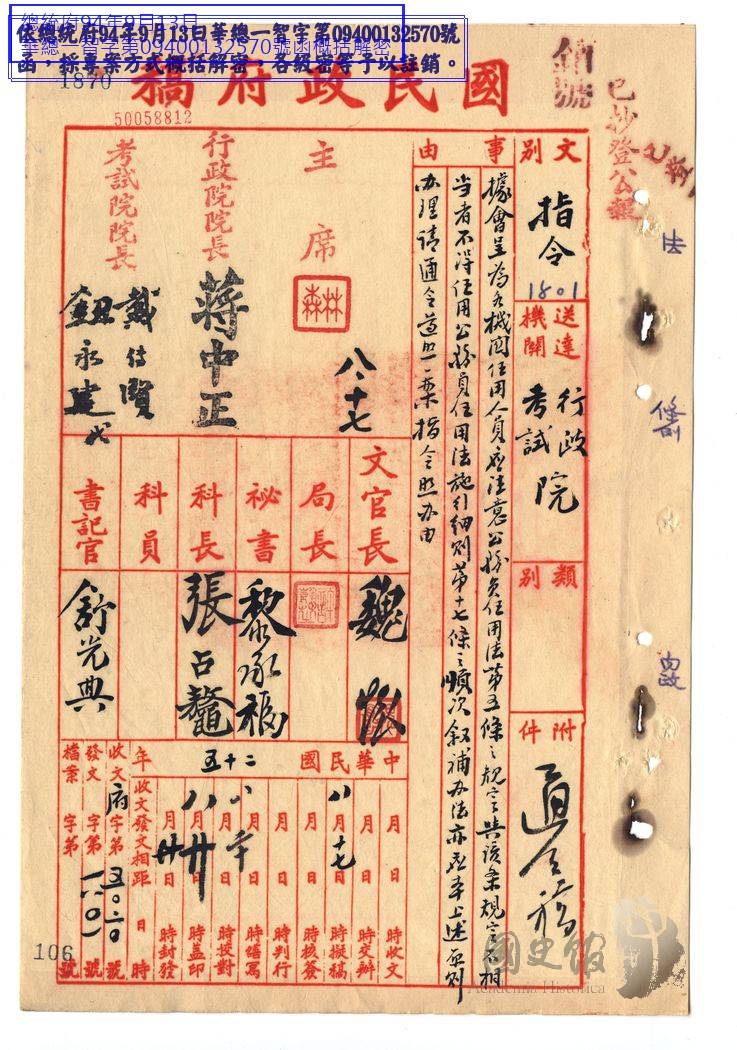 總統府94年9月13日
華總一智字第09400132570號函概括解密
依總統府94年9月13日華總一智字第09400132570號
函，採專案方式概括解密，各級密等予以註銷。
國民政府稿
銷號
已抄登公報
已登
1870
50058812
文別
指令
1801
送達機關
行政院
考試院
類別
附件
通令稿
事由
據會呈為各機關任用人員應注意公務員任用法第五條之規定與該條規定不相
當者不得任用公務員任用法施行細則第十七條之順次敘補辦法亦應本上述原則
办理請通令遵照一案指令照办由
主席
林森
八、十七
行政院院長
蔣中正
考試院院長
戴傳賢
鈕永建代
文官長
魏懷
局長
祕書
黎承福
科長
張占鰲
科員
書記官
舒光典
中華民國二十五年
月日時收文
月日時交辦
八月十七日時擬稿
月日時核簽
月日時判行
月日時繕寫
八月日時校對
八月廿日時蓋印
月廿日時封發
收文發文相距日時
收文府字第五〇六〇號
發文字第一八〇一號
檔案字第號
法
內政
106
國史館
Academia Historica